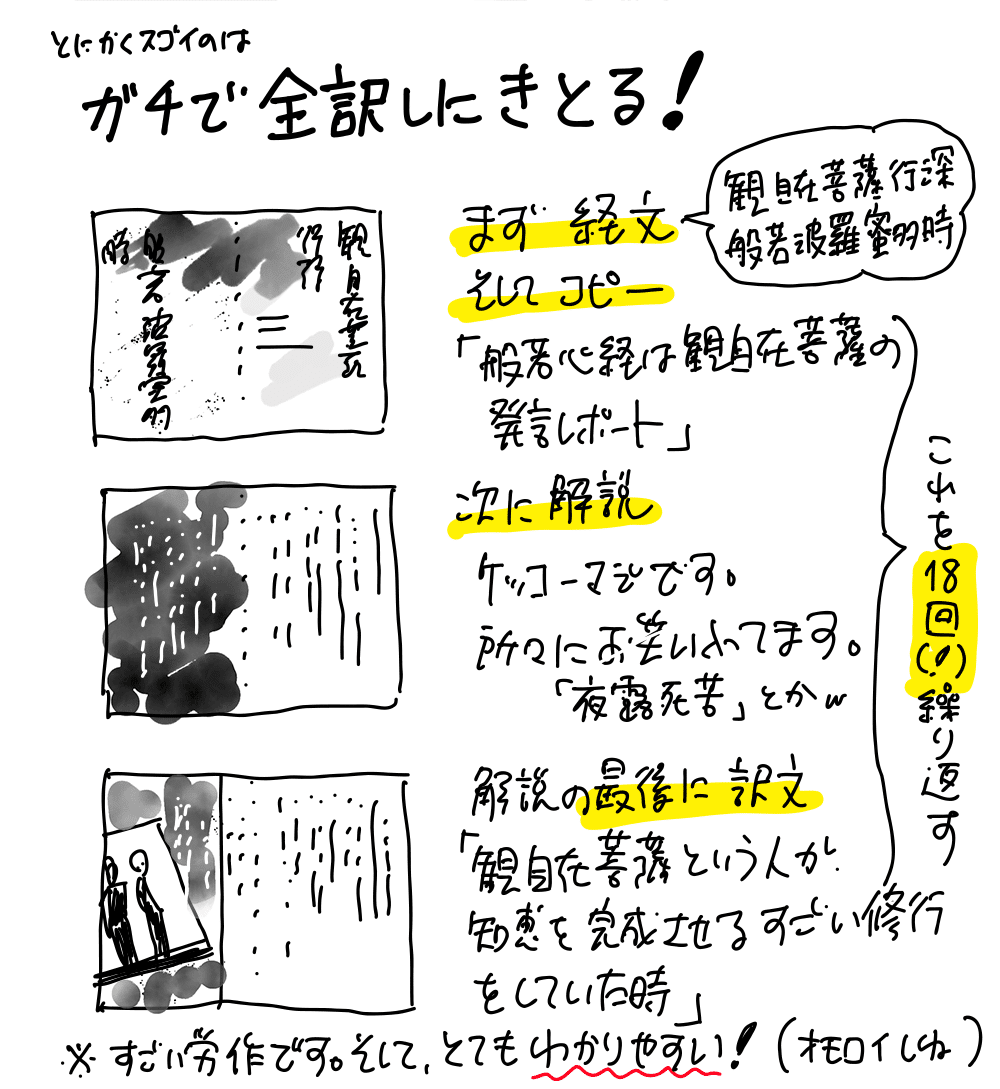 とにかくスゴイのは
ガチで全訳しにきとる!
観自在菩薩行深
般若波羅蜜多時
まず 経文
そして コピー
「般若心経は観自在菩薩の
発言レポート」
次に解説
ケッコーマジです。
所々にお笑い入ってます。
「夜露死苦」とかw
解説の最後に訳文
「観自在菩薩という人が
知恵を完成させるすごい修行
をしていた時」
これを18回(!)繰り返す
※ すごい労作です。そして、とてもわかりやすい!(オモロイしね)